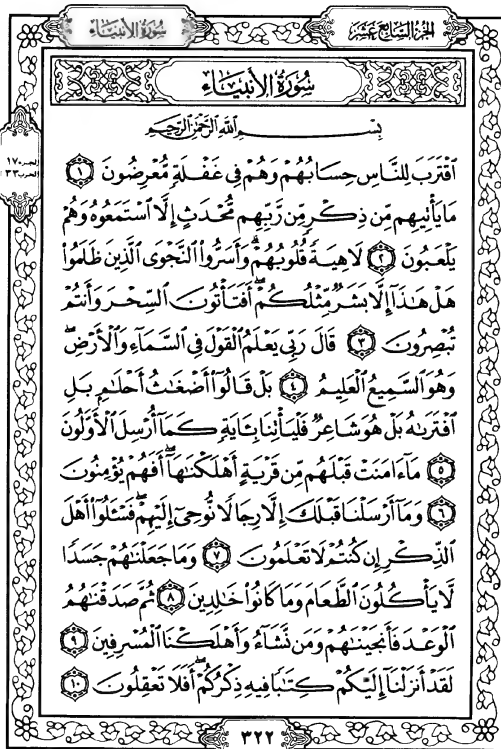 الجزء السابع عشر
سورة الأنبياء
سُورَةُ الأَنبِيَاءِ
بِسْمِ اللَّهِ الرَّحْمَٰنِ الرَّحِيمِ
الجزء ١٧
الحزب ٣٣
اقْتَرَبَ لِلنَّاسِ حِسَابُهُمْ وَهُمْ فِي غَفْلَةٍ مُّعْرِضُونَ ١
مَا يَأْتِيهِم مِّن ذِكْرٍ مِّن رَّبِّهِم مُّحْدَثٍ إِلَّا اسْتَمَعُوهُ وَهُمْ
يَلْعَبُونَ ٢ لَاهِيَةً قُلُوبُهُمْ ۗ وَأَسَرُّوا النَّجْوَى الَّذِينَ ظَلَمُوا
هَلْ هَٰذَا إِلَّا بَشَرٌ مِّثْلُكُمْ ۖ أَفَتَأْتُونَ السِّحْرَ وَأَنتُمْ
تُبْصِرُونَ ٣ قَالَ رَبِّي يَعْلَمُ الْقَوْلَ فِي السَّمَاءِ وَالْأَرْضِ ۖ
وَهُوَ السَّمِيعُ الْعَلِيمُ ٤ بَلْ قَالُوا أَضْغَٰثُ أَحْلَٰمٍ بَلِ
افْتَرَىٰهُ بَلْ هُوَ شَاعِرٌ فَلْيَأْتِنَا بِـَٔايَةٍ كَمَا أُرْسِلَ الْأَوَّلُونَ
٥ مَا ءَامَنَتْ قَبْلَهُم مِّن قَرْيَةٍ أَهْلَكْنَٰهَا ۖ أَفَهُمْ يُؤْمِنُونَ
٦ وَمَا أَرْسَلْنَا قَبْلَكَ إِلَّا رِجَالًا نُّوحِي إِلَيْهِمْ ۖ فَسْـَٔلُوا أَهْلَ
الذِّكْرِ إِن كُنتُمْ لَا تَعْلَمُونَ ٧ وَمَا جَعَلْنَٰهُمْ جَسَدًا
لَّا يَأْكُلُونَ الطَّعَامَ وَمَا كَانُوا خَٰلِدِينَ ٨ ثُمَّ صَدَقْنَٰهُمُ
الْوَعْدَ فَأَنجَيْنَٰهُمْ وَمَن نَّشَاءُ وَأَهْلَكْنَا الْمُسْرِفِينَ ٩
لَقَدْ أَنزَلْنَا إِلَيْكُمْ كِتَٰبًا فِيهِ ذِكْرُكُمْ ۖ أَفَلَا تَعْقِلُونَ ١٠
٣٢٢